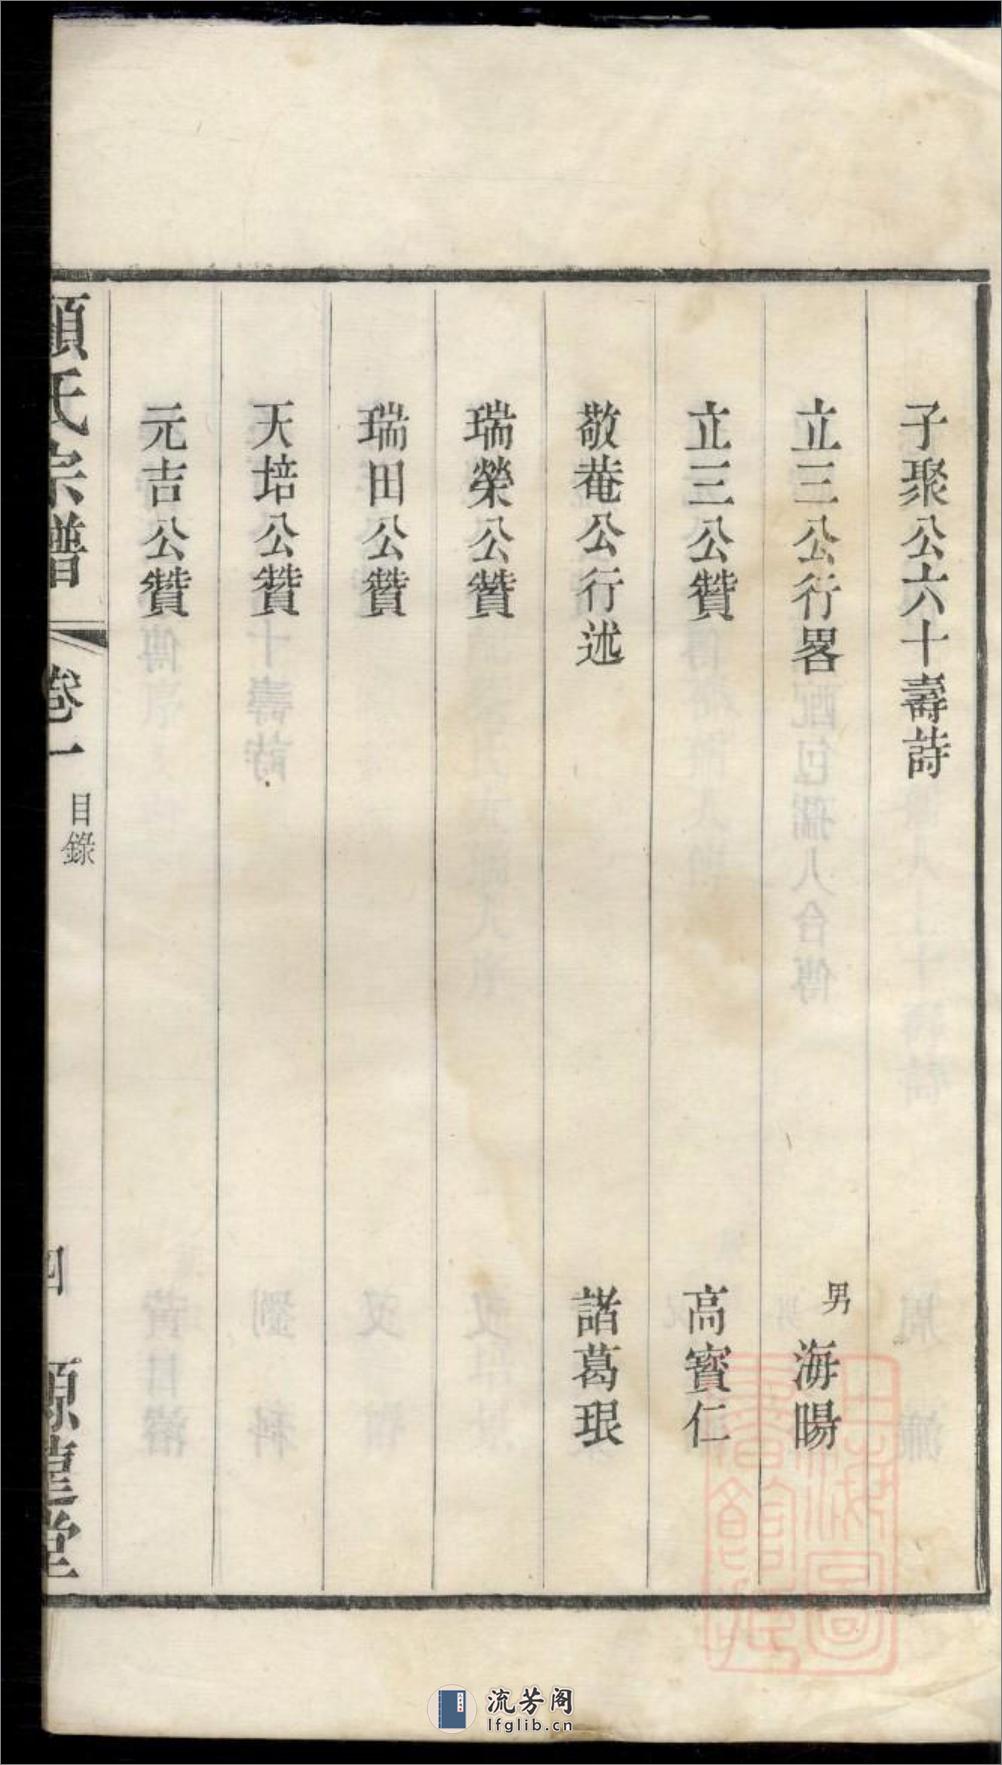 子聚公六十壽詩
立三公行畧 男 海陽
立三公贊 高寶仁
敬菴公行述 諸葛珢
瑞榮公贊
瑞田公贊
天培公贊
元吉公贊
氏宗譜 卷一 目錄 四 堂
流芳阁
lfglib.cn